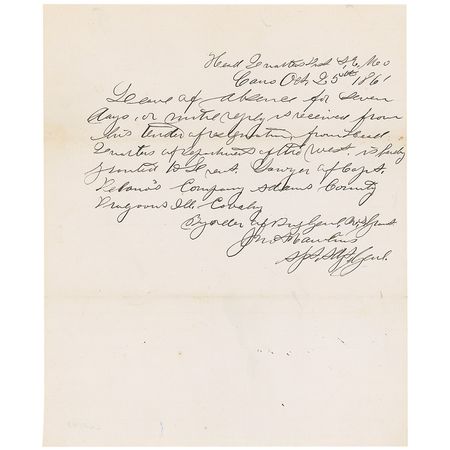 Head Quarters Dist S. E. Mo
Cairo Oct 25th 1861
Leave of absence for seven
days, or until reply is received from
his tender of resignation, from Head
Quarters of Department of the West, is hereby
granted to Lieut. Sawyer of Capt.
Company Adams County
Dragoons Ills. Cavalry
By order of Brig Genl. U. S. Grant
Jno A Rawlins
A. A. Genl.